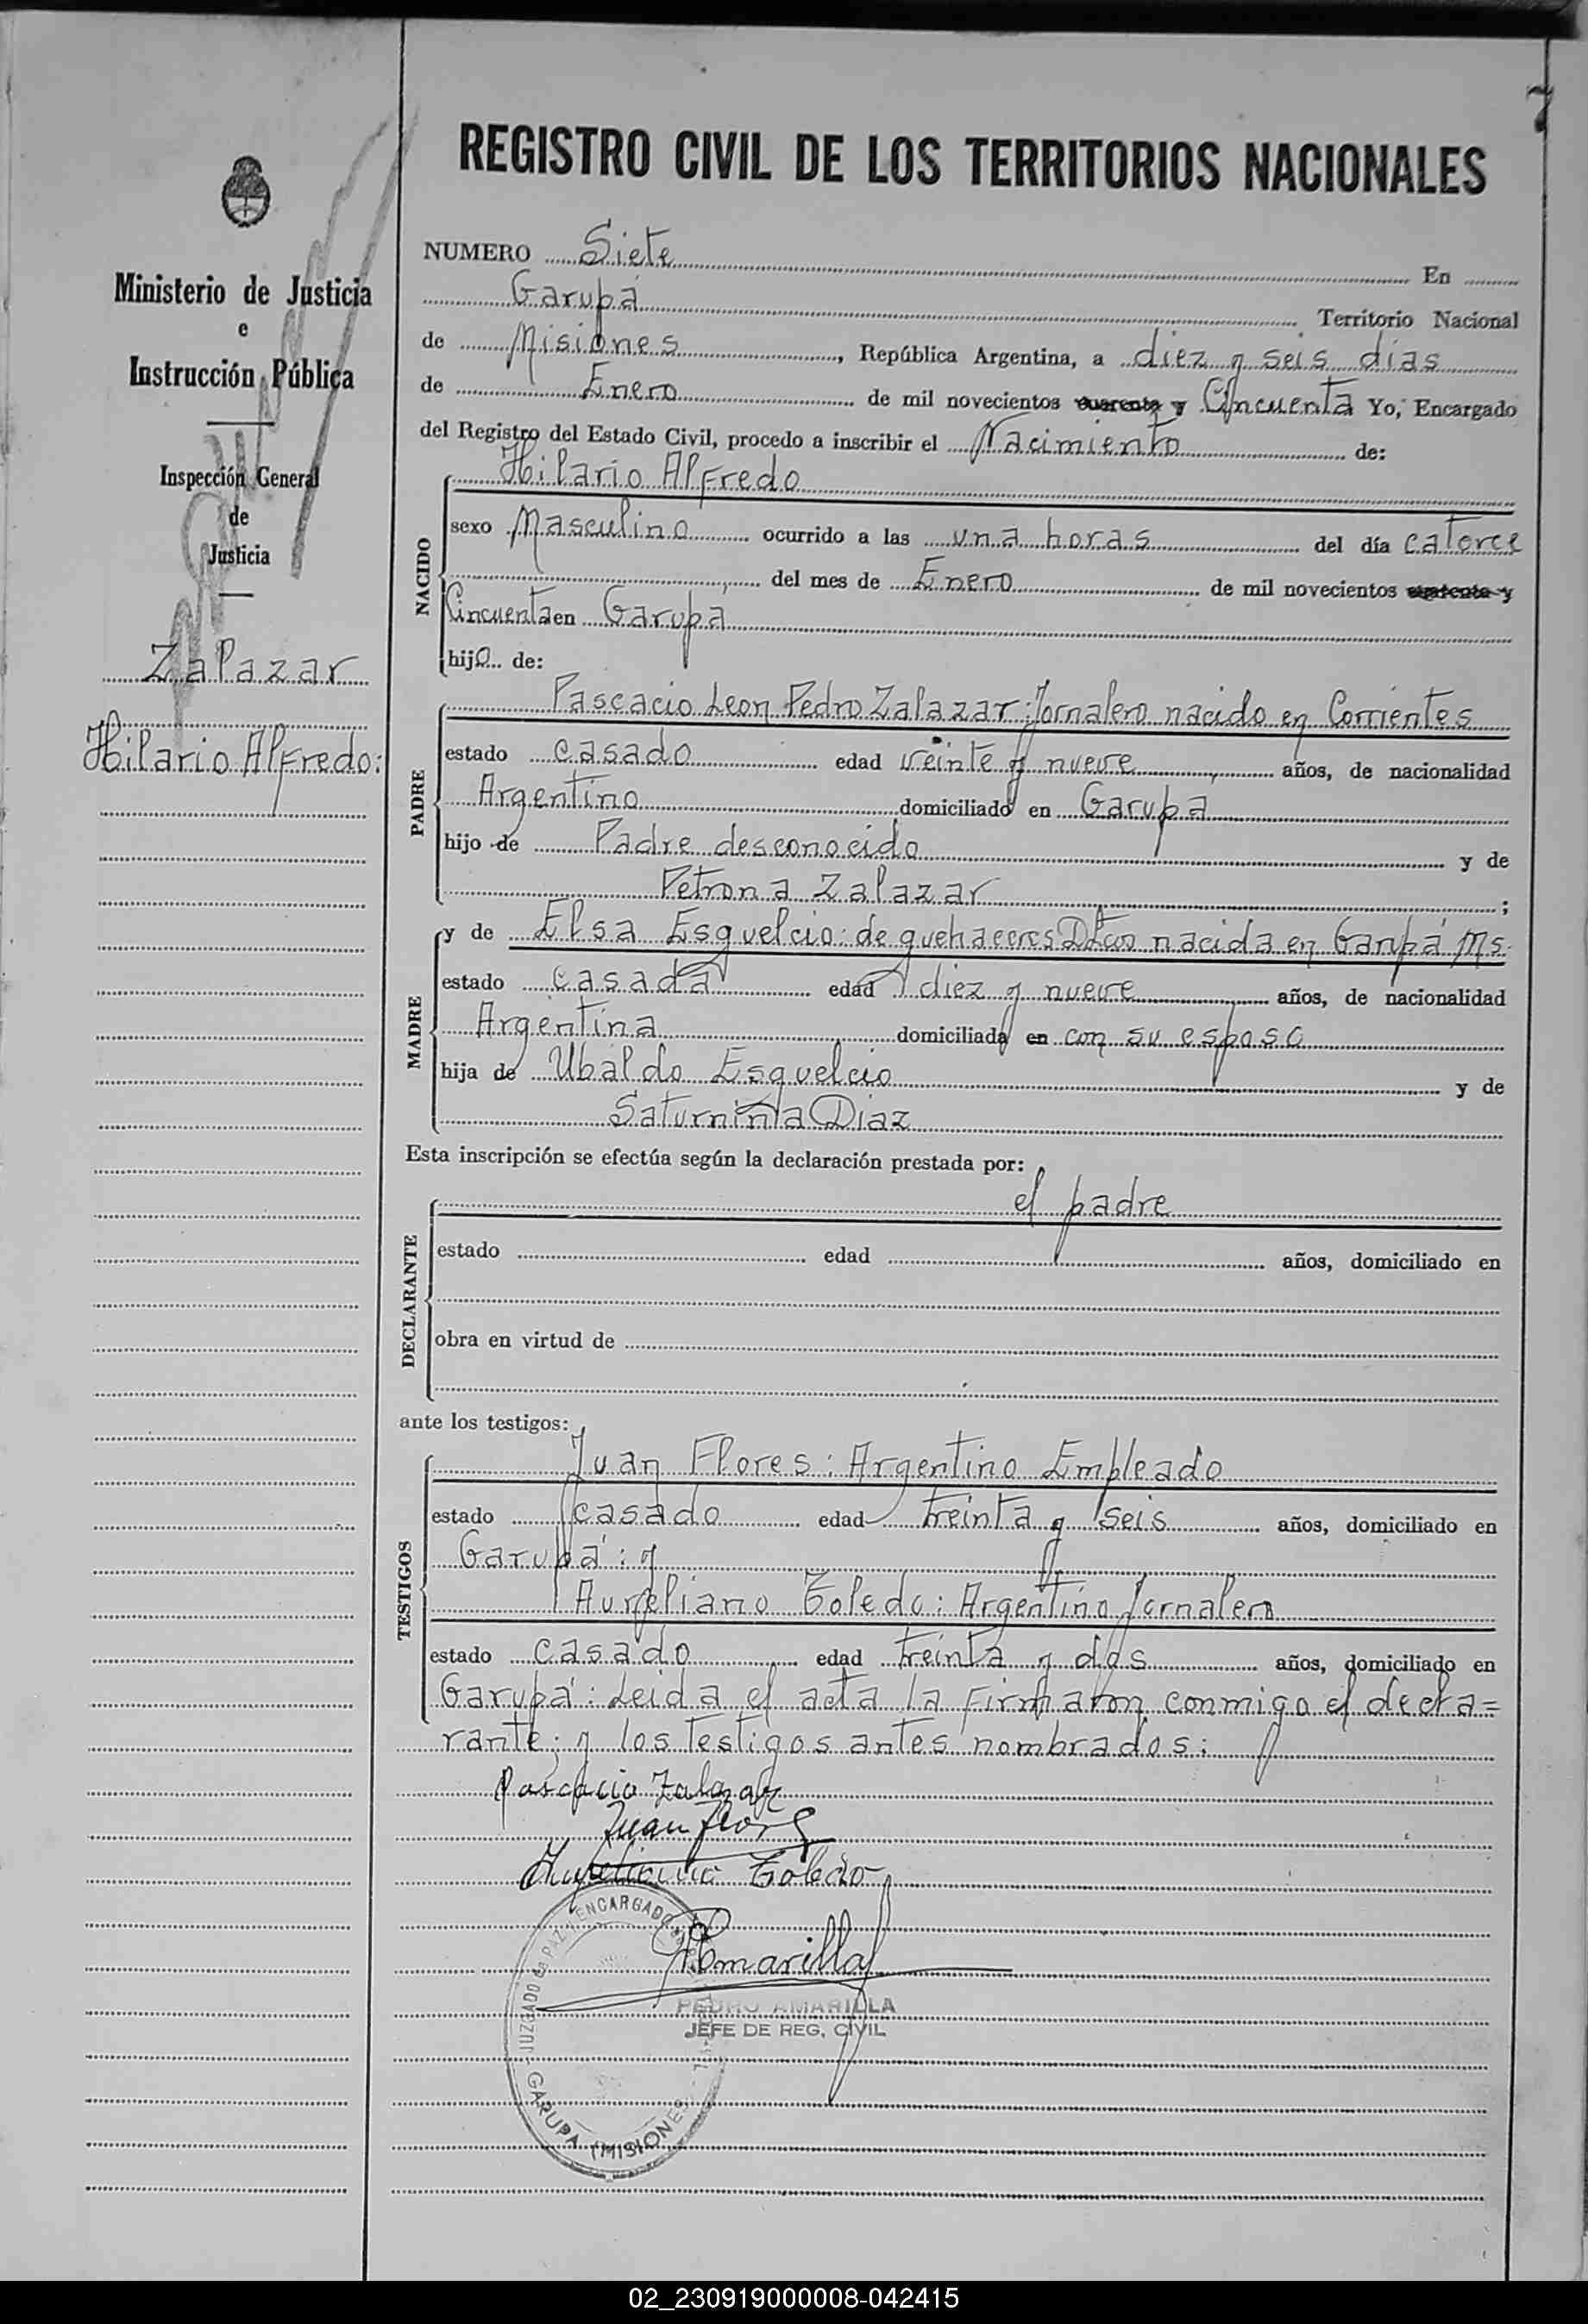 7
REGISTRO CIVIL DE LOS TERRITORIOS NACIONALES
Ministerio de Justicia
e
Instrucción Pública
Inspección General
de
Justicia
Zalazar
Hilario Alfredo:
NUMERO Siete En
Garupá Territorio Nacional
de Misiones, República Argentina, a diez y seis días
de Enero de mil novecientos cuarenta y Cincuenta Yo, Encargado
del Registro del Estado Civil, procedo a inscribir el Nacimiento de:
NACIDO
Hilario Alfredo
sexo Masculino ocurrido a las una horas del día catorce
del mes de Enero de mil novecientos cuarenta y
Cincuenta en Garupá
hijo de:
PADRE
Pascacio Leon Pedro Zalazar: Jornalero nacido en Corrientes
estado casado edad veinte y nueve años, de nacionalidad
Argentino domiciliado en Garupá
hijo de Padre desconocido y de
Petrona Zalazar;
MADRE
y de Elsa Esquelcio: de quehaceres nacida en Garupá Ms.
estado casada edad diez y nueve años, de nacionalidad
Argentina domiciliada en con su esposo
hija de Ubaldo Esquelcio y de
Saturnina Diaz
Esta inscripción se efectúa según la declaración prestada por:
DECLARANTE
el padre
estado edad años, domiciliado en
obra en virtud de
ante los testigos:
TESTIGOS
Juan Flores: Argentino Empleado
estado casado edad treinta y seis años, domiciliado en
Garupá: y
Aureliano Toledo: Argentino Jornalero
estado casado edad treinta y dos años, domiciliado en
Garupá: Leida el acta la firmaron conmigo el decla=
rante; y los testigos antes nombrados:
Pascacio Zalazar
Juan Flores
Aureliano Toledo
PAmarilla
PEDRO AMARILLA
JEFE DE REG. CIVIL
JUZGADO de PAZ y ENCARGADO
GARUPA (MISIONES)
02_230919000008-042415